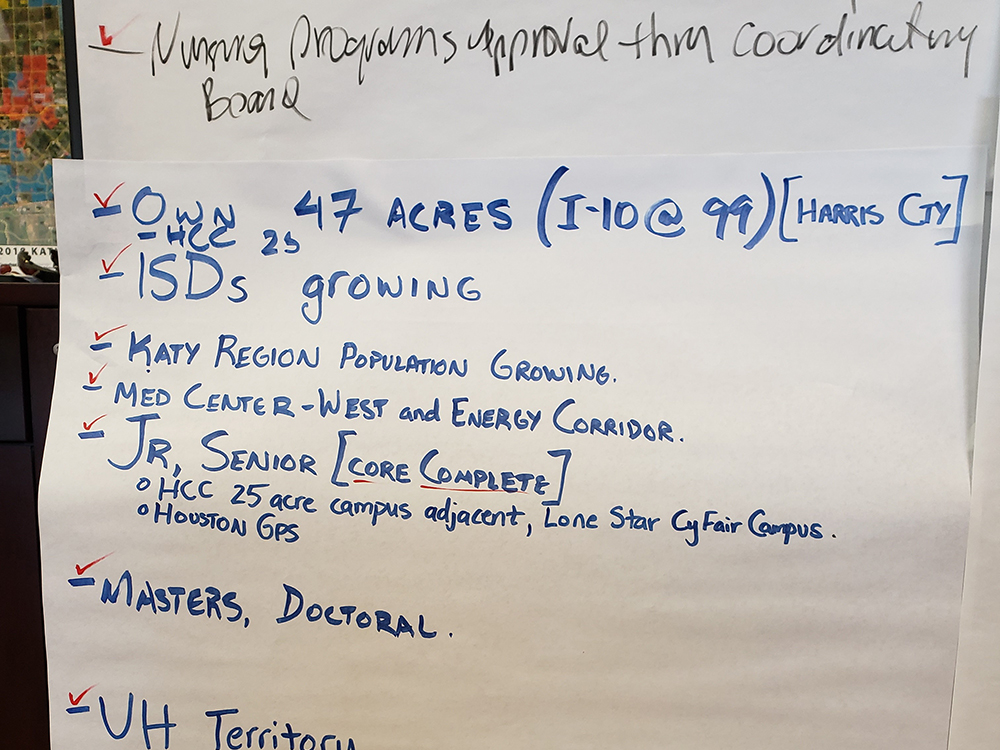 - Nursing Programs Approval thru Coordinating
Board
2018 KAT
- Own 47 ACRES (I-10 @ 99) [HARRIS CTY]
- HCC 25
- ISDs growing
- KATY REGION POPULATION GROWING.
- MED CENTER-WEST and ENERGY CORRIDOR.
- JR, SENIOR [CORE COMPLETE]
o HCC 25 acre campus adjacent, Lone Star CyFair Campus.
o HOUSTON GPS
- MASTERS, DOCTORAL.
- UH Territory